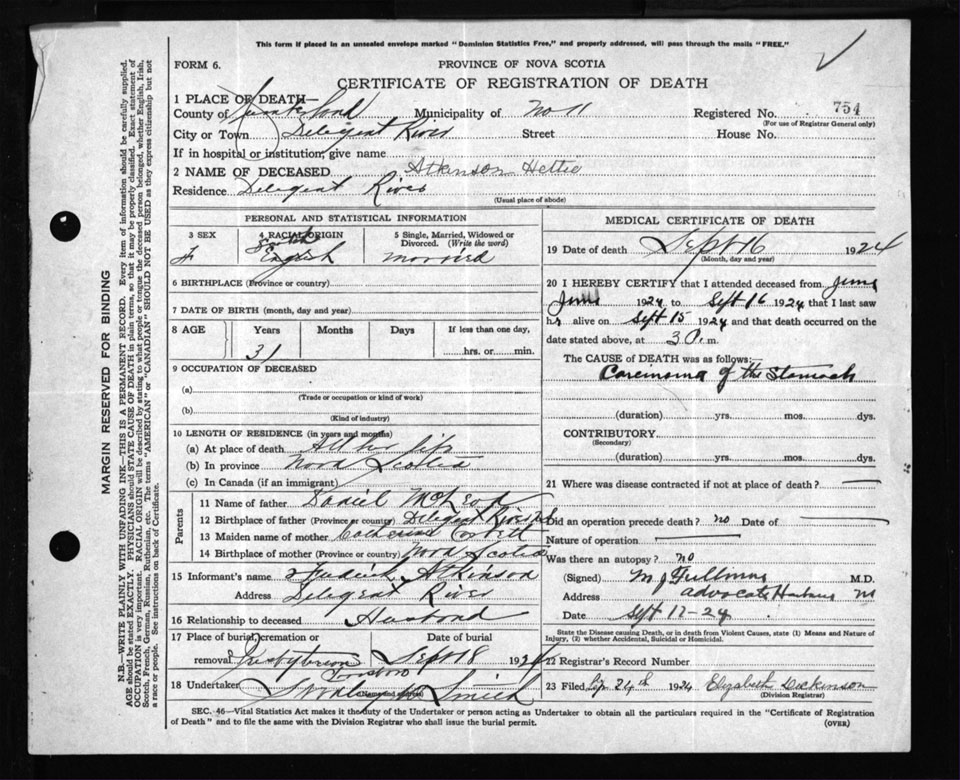 This form if placed in an unsealed envelope marked "Dominion Statistics Free," and properly addressed, will pass through the mails "FREE."
FORM 6.
PROVINCE OF NOVA SCOTIA
CERTIFICATE OF REGISTRATION OF DEATH
1 PLACE OF DEATH—
County of Municipality of No 11 Registered No. 754
(For use of Registrar General only)
City or Town Deligent River Street House No.
If in hospital or institution, give name
2 NAME OF DECEASED Atkinson Hettie
Residence Deligent River
(Usual place of abode)
PERSONAL AND STATISTICAL INFORMATION
3 SEX 4 RACIAL ORIGIN 5 Single, Married, Widowed or Divorced. (Write the word)
F English married
6 BIRTHPLACE (Province or country)
7 DATE OF BIRTH (month, day and year)
8 AGE Years Months Days If less than one day,
31 hrs. or min.
9 OCCUPATION OF DECEASED
(a)
(Trade or occupation or kind of work)
(b)
(Kind of industry)
10 LENGTH OF RESIDENCE (in years and months)
(a) At place of death All her life
(b) In province Nova Scotia
(c) In Canada (if an immigrant)
Parents
11 Name of father Daniel McLeod
12 Birthplace of father (Province or country) Deligent River
13 Maiden name of mother Catherine
14 Birthplace of mother (Province or country) Nova Scotia
15 Informant's name Atkinson
Address Deligent River
16 Relationship to deceased Husband
17 Place of burial, cremation or removal Date of burial
Presbyterian Sept 18 1924
Parrsboro
18 Undertaker Smith
MEDICAL CERTIFICATE OF DEATH
19 Date of death Sept 16 1924
(Month, day and year)
20 I HEREBY CERTIFY that I attended deceased from June
June 1924 to Sept 16 1924 that I last saw
her alive on Sept 15 1924 and that death occurred on the
date stated above, at 3 m.
The CAUSE of DEATH was as follows:
Carcinoma of the Stomach
(duration) yrs. mos. dys.
CONTRIBUTORY
(Secondary)
(duration) yrs. mos. dys.
21 Where was disease contracted if not at place of death?
Did an operation precede death? no Date of
Nature of operation
Was there an autopsy? no
(Signed) M.D.
Address Advocate Harbour
Date Sept 17-24
State the Disease causing Death, or in death from Violent Causes, state (1) Means and Nature of Injury, (2) whether Accidental, Suicidal or Homicidal.
22 Registrar's Record Number
23 Filed Sep 24th 1924 Elizabeth Dickinson
(Division Registrar)
SEC. 46—Vital Statistics Act makes it the duty of the Undertaker or person acting as Undertaker to obtain all the particulars required in the "Certificate of Registration
of Death" and to file the same with the Division Registrar who shall issue the burial permit.
(OVER)
MARGIN RESERVED FOR BINDING
N.B.—WRITE PLAINLY WITH UNFADING INK—THIS IS A PERMANENT RECORD. Every item of information should be carefully supplied.
AGE should be stated EXACTLY. PHYSICIANS should STATE CAUSE OF DEATH in plain terms, so that it may be properly classified. Exact statement of
OCCUPATION is very important. RACIAL ORIGIN will be described by stating to what people or tongue the deceased person belonged, whether English, Irish,
Scotch, French, German, Russian, Ruthenian, etc. The terms "AMERICAN" or "CANADIAN" SHOULD NOT BE USED as they express citizenship but not
a race or people. See instructions on back of Certificate.